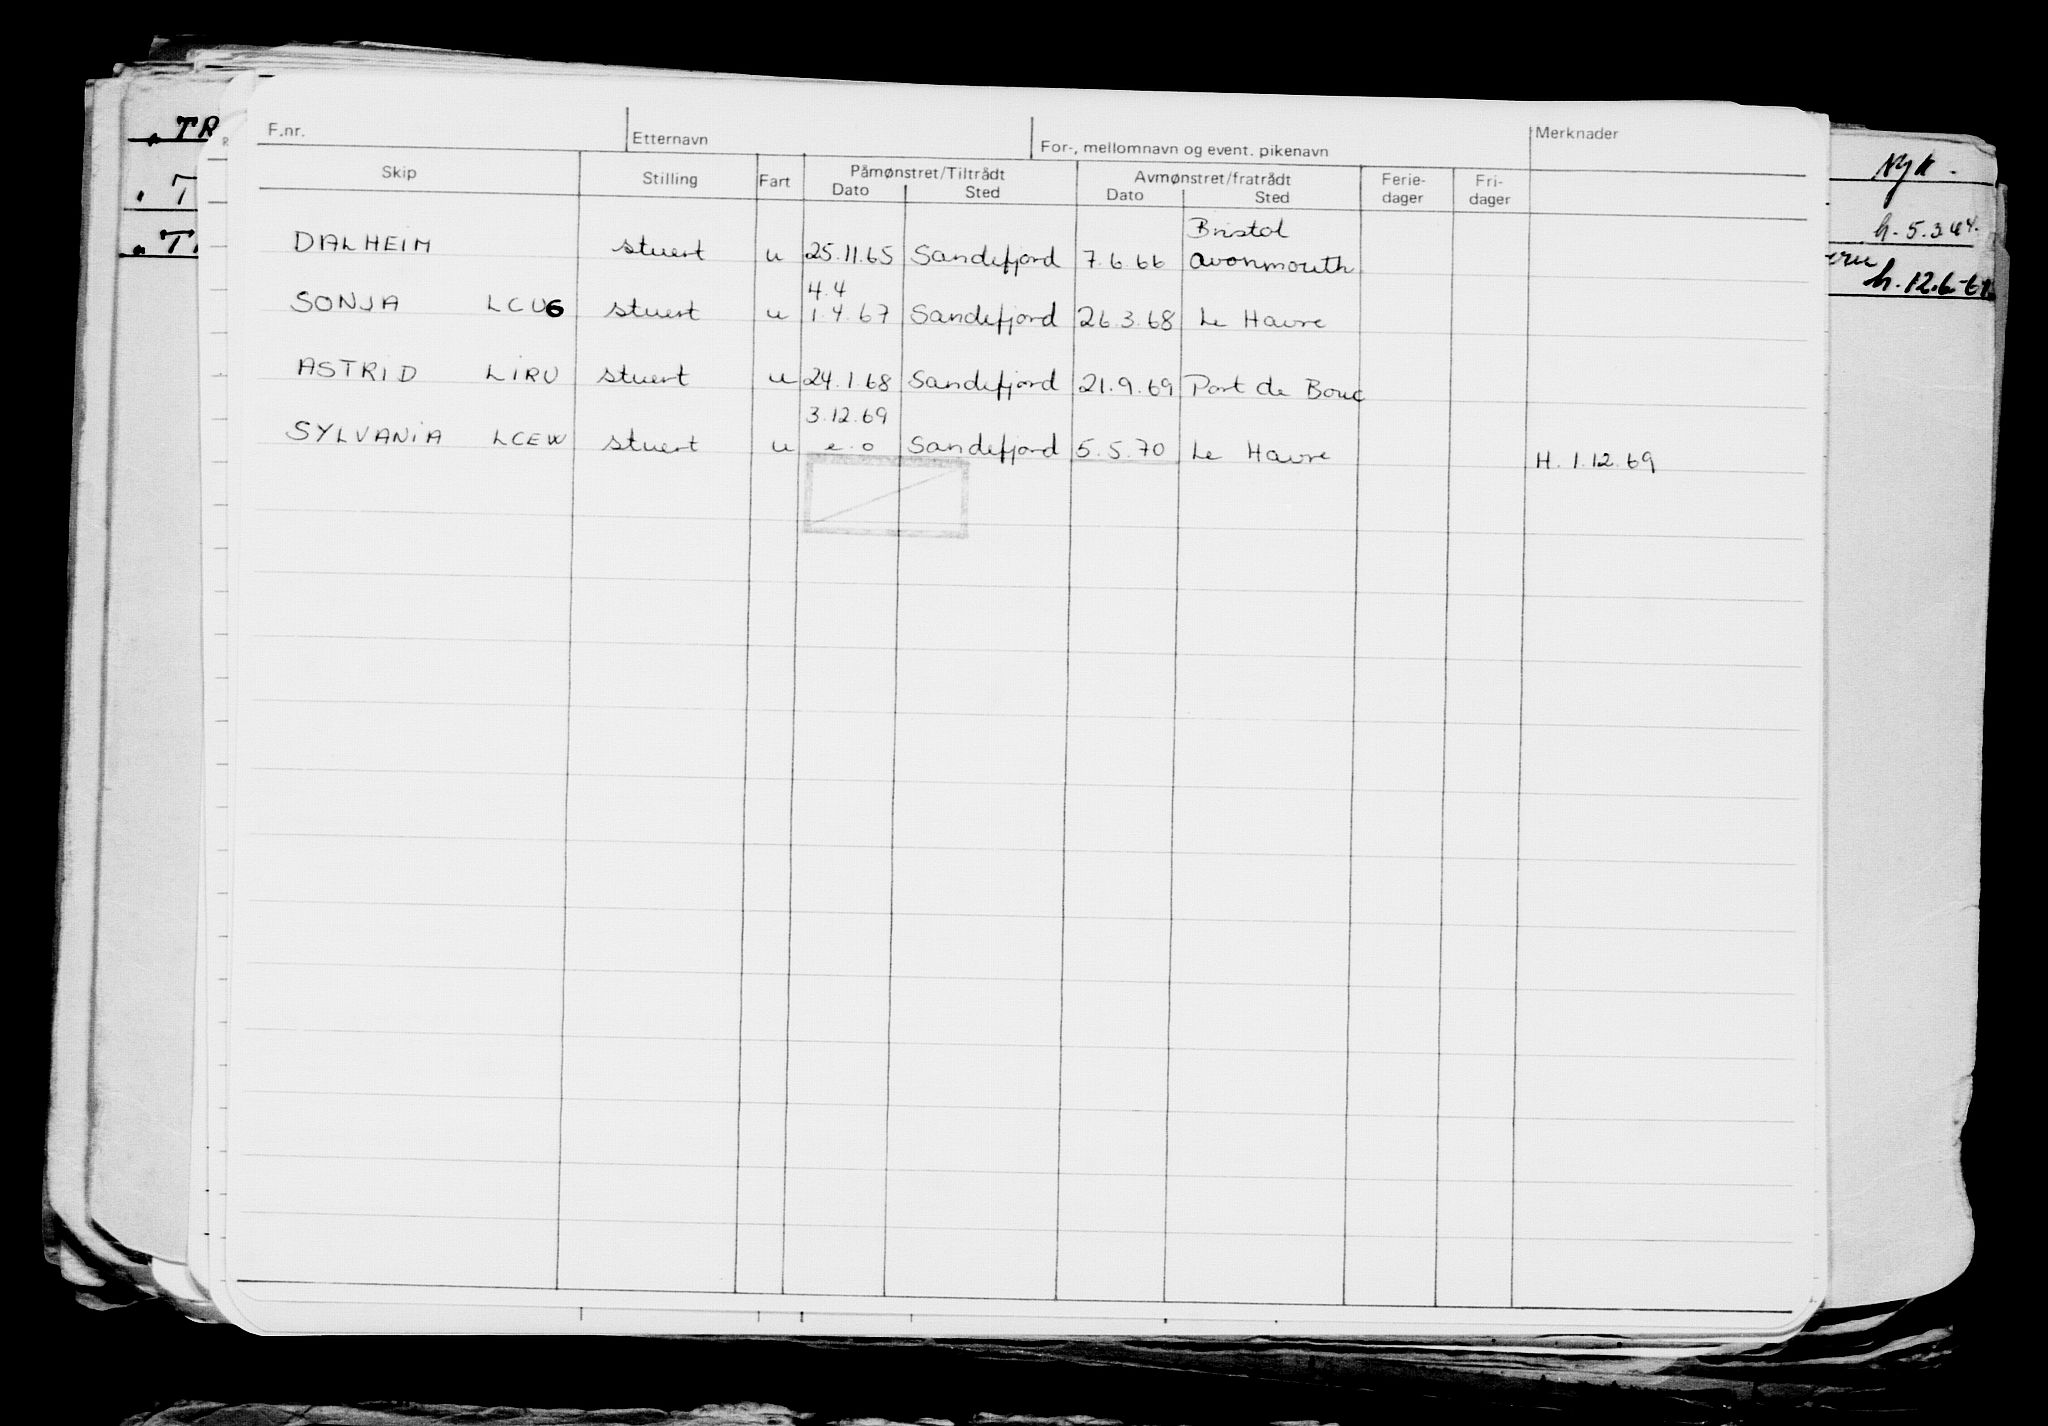 F.nr. Etternavn For-, mellomnavn og event. pikenavn Merknader
Skip Stilling Fart Påmønstret/Tiltrådt Avmønstret/fratrådt Ferie- Fri-
Dato Sted Dato Sted dager dager
Bristol
DALHEIM stuert u 25.11.65 Sandefjord 7.6.66 Avonmouth
4.4
SONJA LCUG stuert u 1.4.67 Sandefjord 26.3.68 Le Havre
ASTRID LIRU stuert u 24.1.68 Sandefjord 21.9.69 Port de Bouc
3.12.69
SYLVANIA LCEW stuert u e.o Sandefjord 5.5.70 Le Havre H. 1.12.69
TR
T
Nyk.
h. 12.6-61